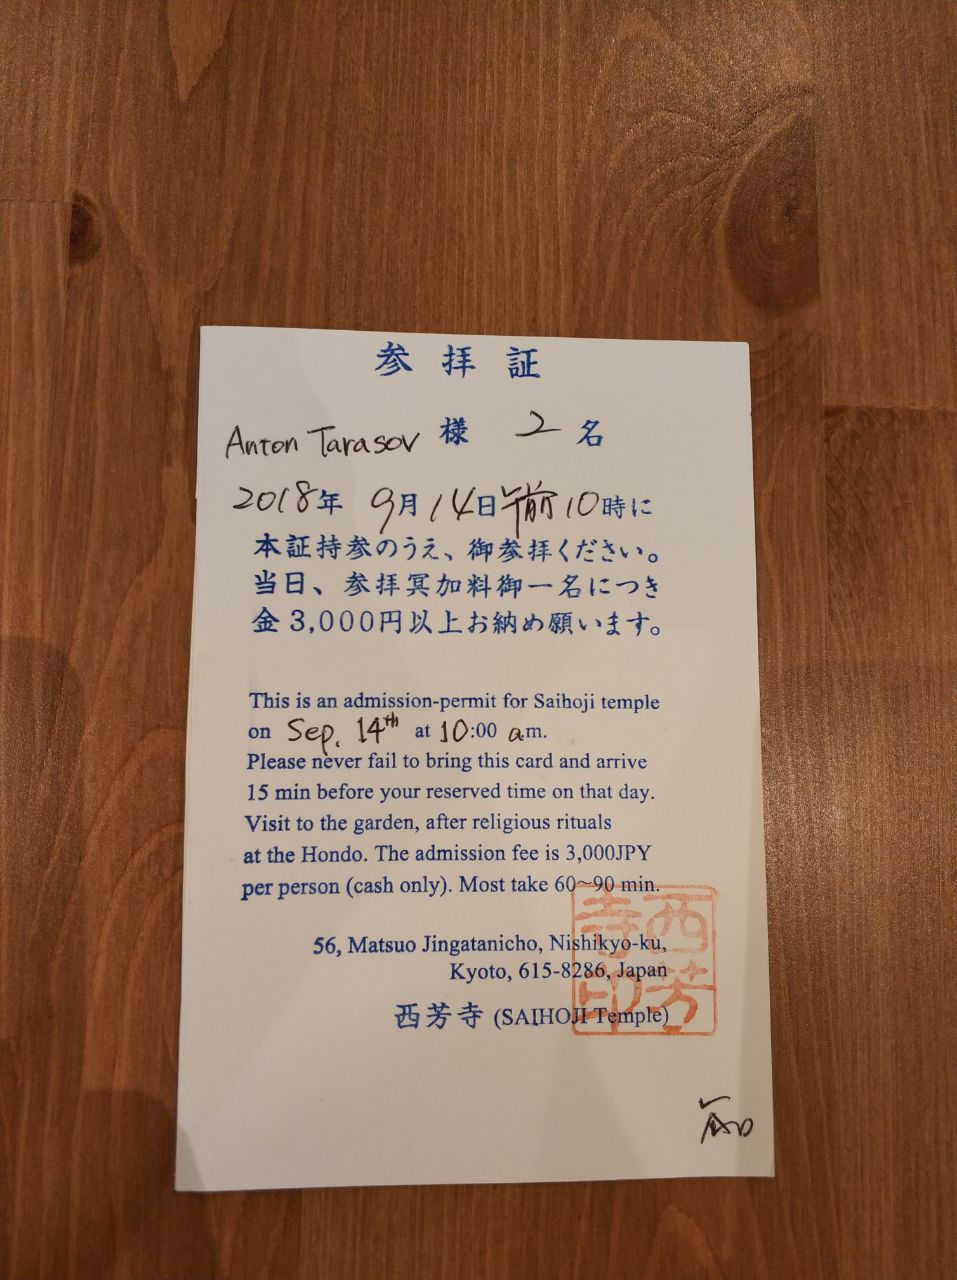 参拝証
Anton Tarasov 様 2名
2018年 9月14日午前10時に
本証持参のうえ、御参拝ください。
当日、参拝冥加料御一名につき
金3,000円以上お納め願います。
This is an admission-permit for Saihoji temple
on Sep. 14th at 10:00 am.
Please never fail to bring this card and arrive
15 min before your reserved time on that day.
Visit to the garden, after religious rituals
at the Hondo. The admission fee is 3,000JPY
per person (cash only). Most take 60~90 min.
56, Matsuo Jingatanicho, Nishikyo-ku,
Kyoto, 615-8286, Japan
西芳寺 (SAIHOJI Temple)
西芳
寺印